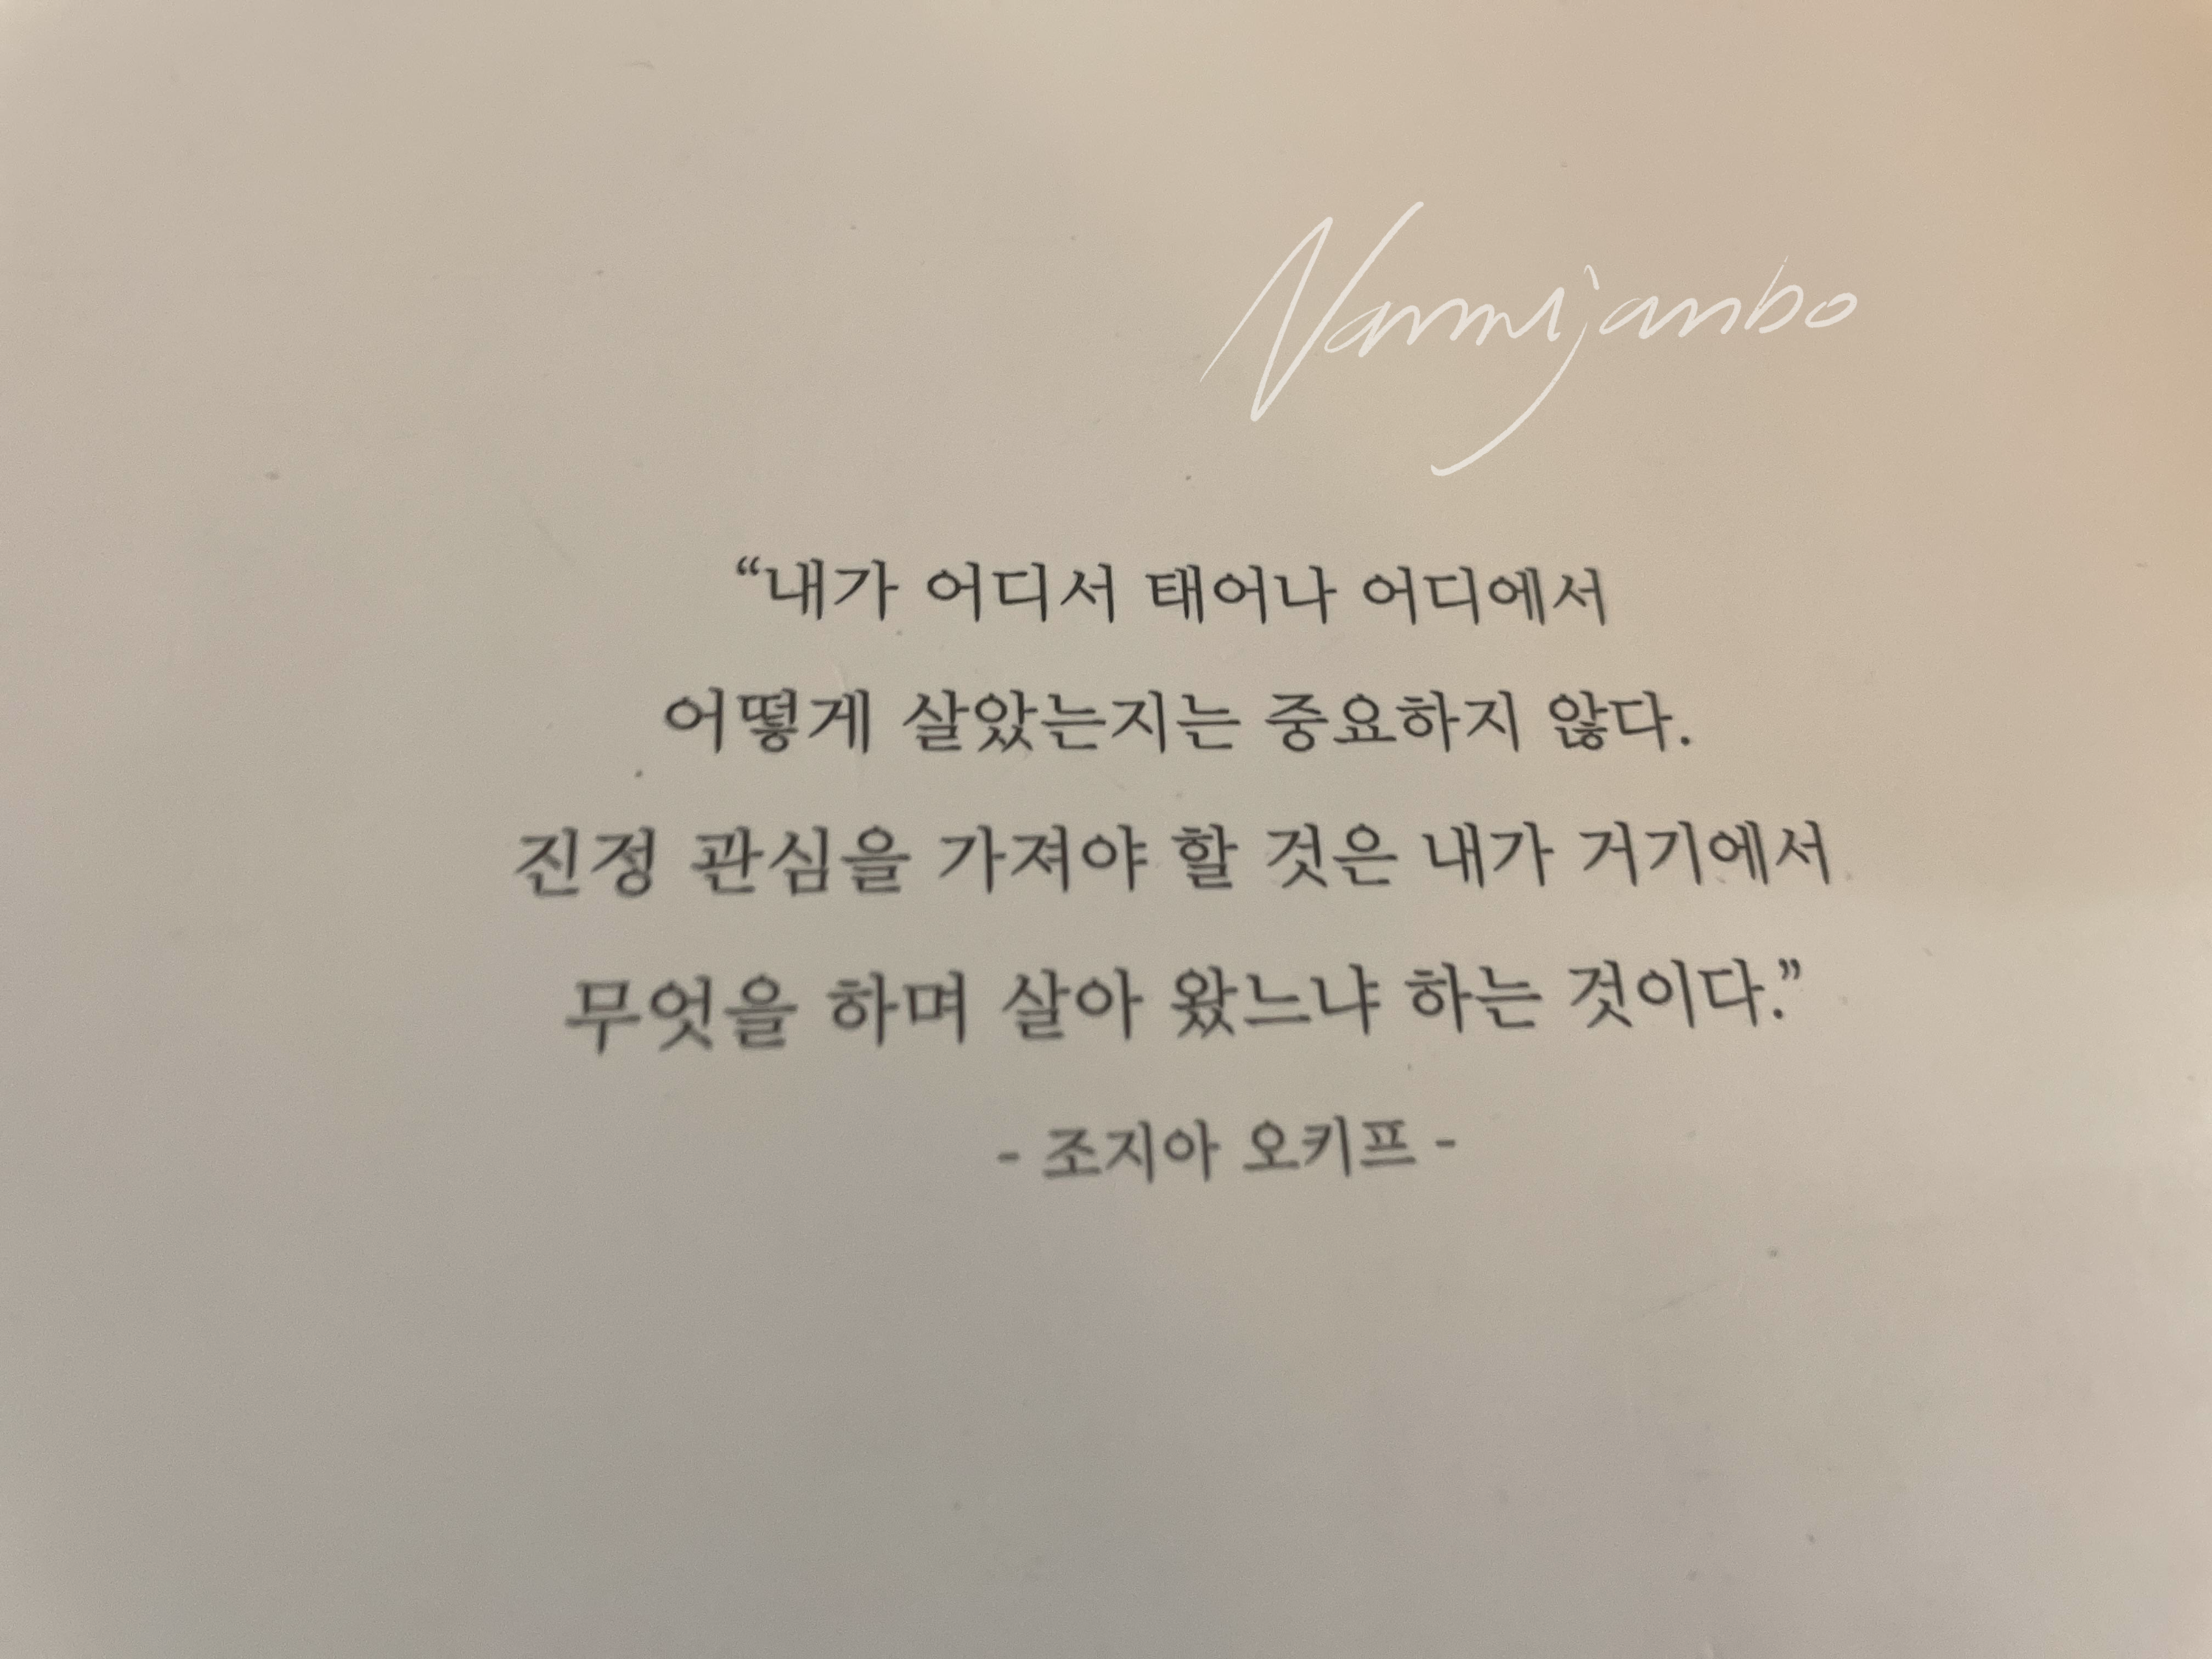 Nammijanbo
“내가 어디서 태어나 어디에서
어떻게 살았는지는 중요하지 않다.
진정 관심을 가져야 할 것은 내가 거기에서
무엇을 하며 살아 왔느냐 하는 것이다.”
- 조지아 오키프 -